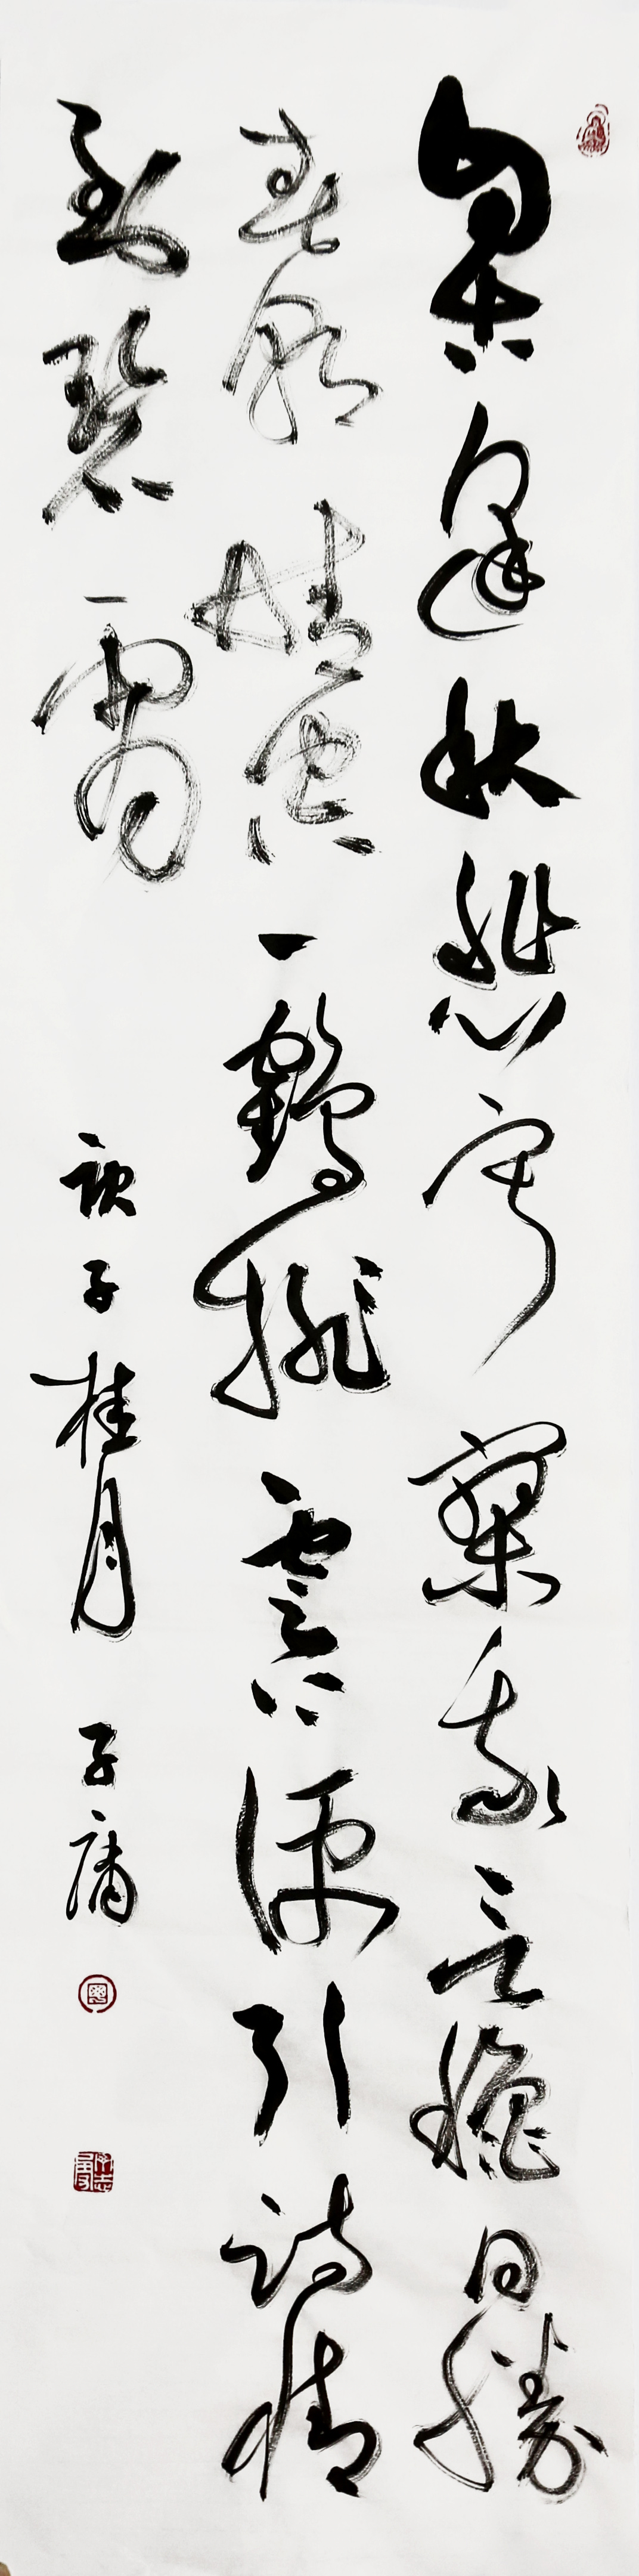 自古逢秋悲寂寥我言秋日勝
春朝晴空一鶴排雲上便引詩情
到碧霄 庚子桂月 子庸